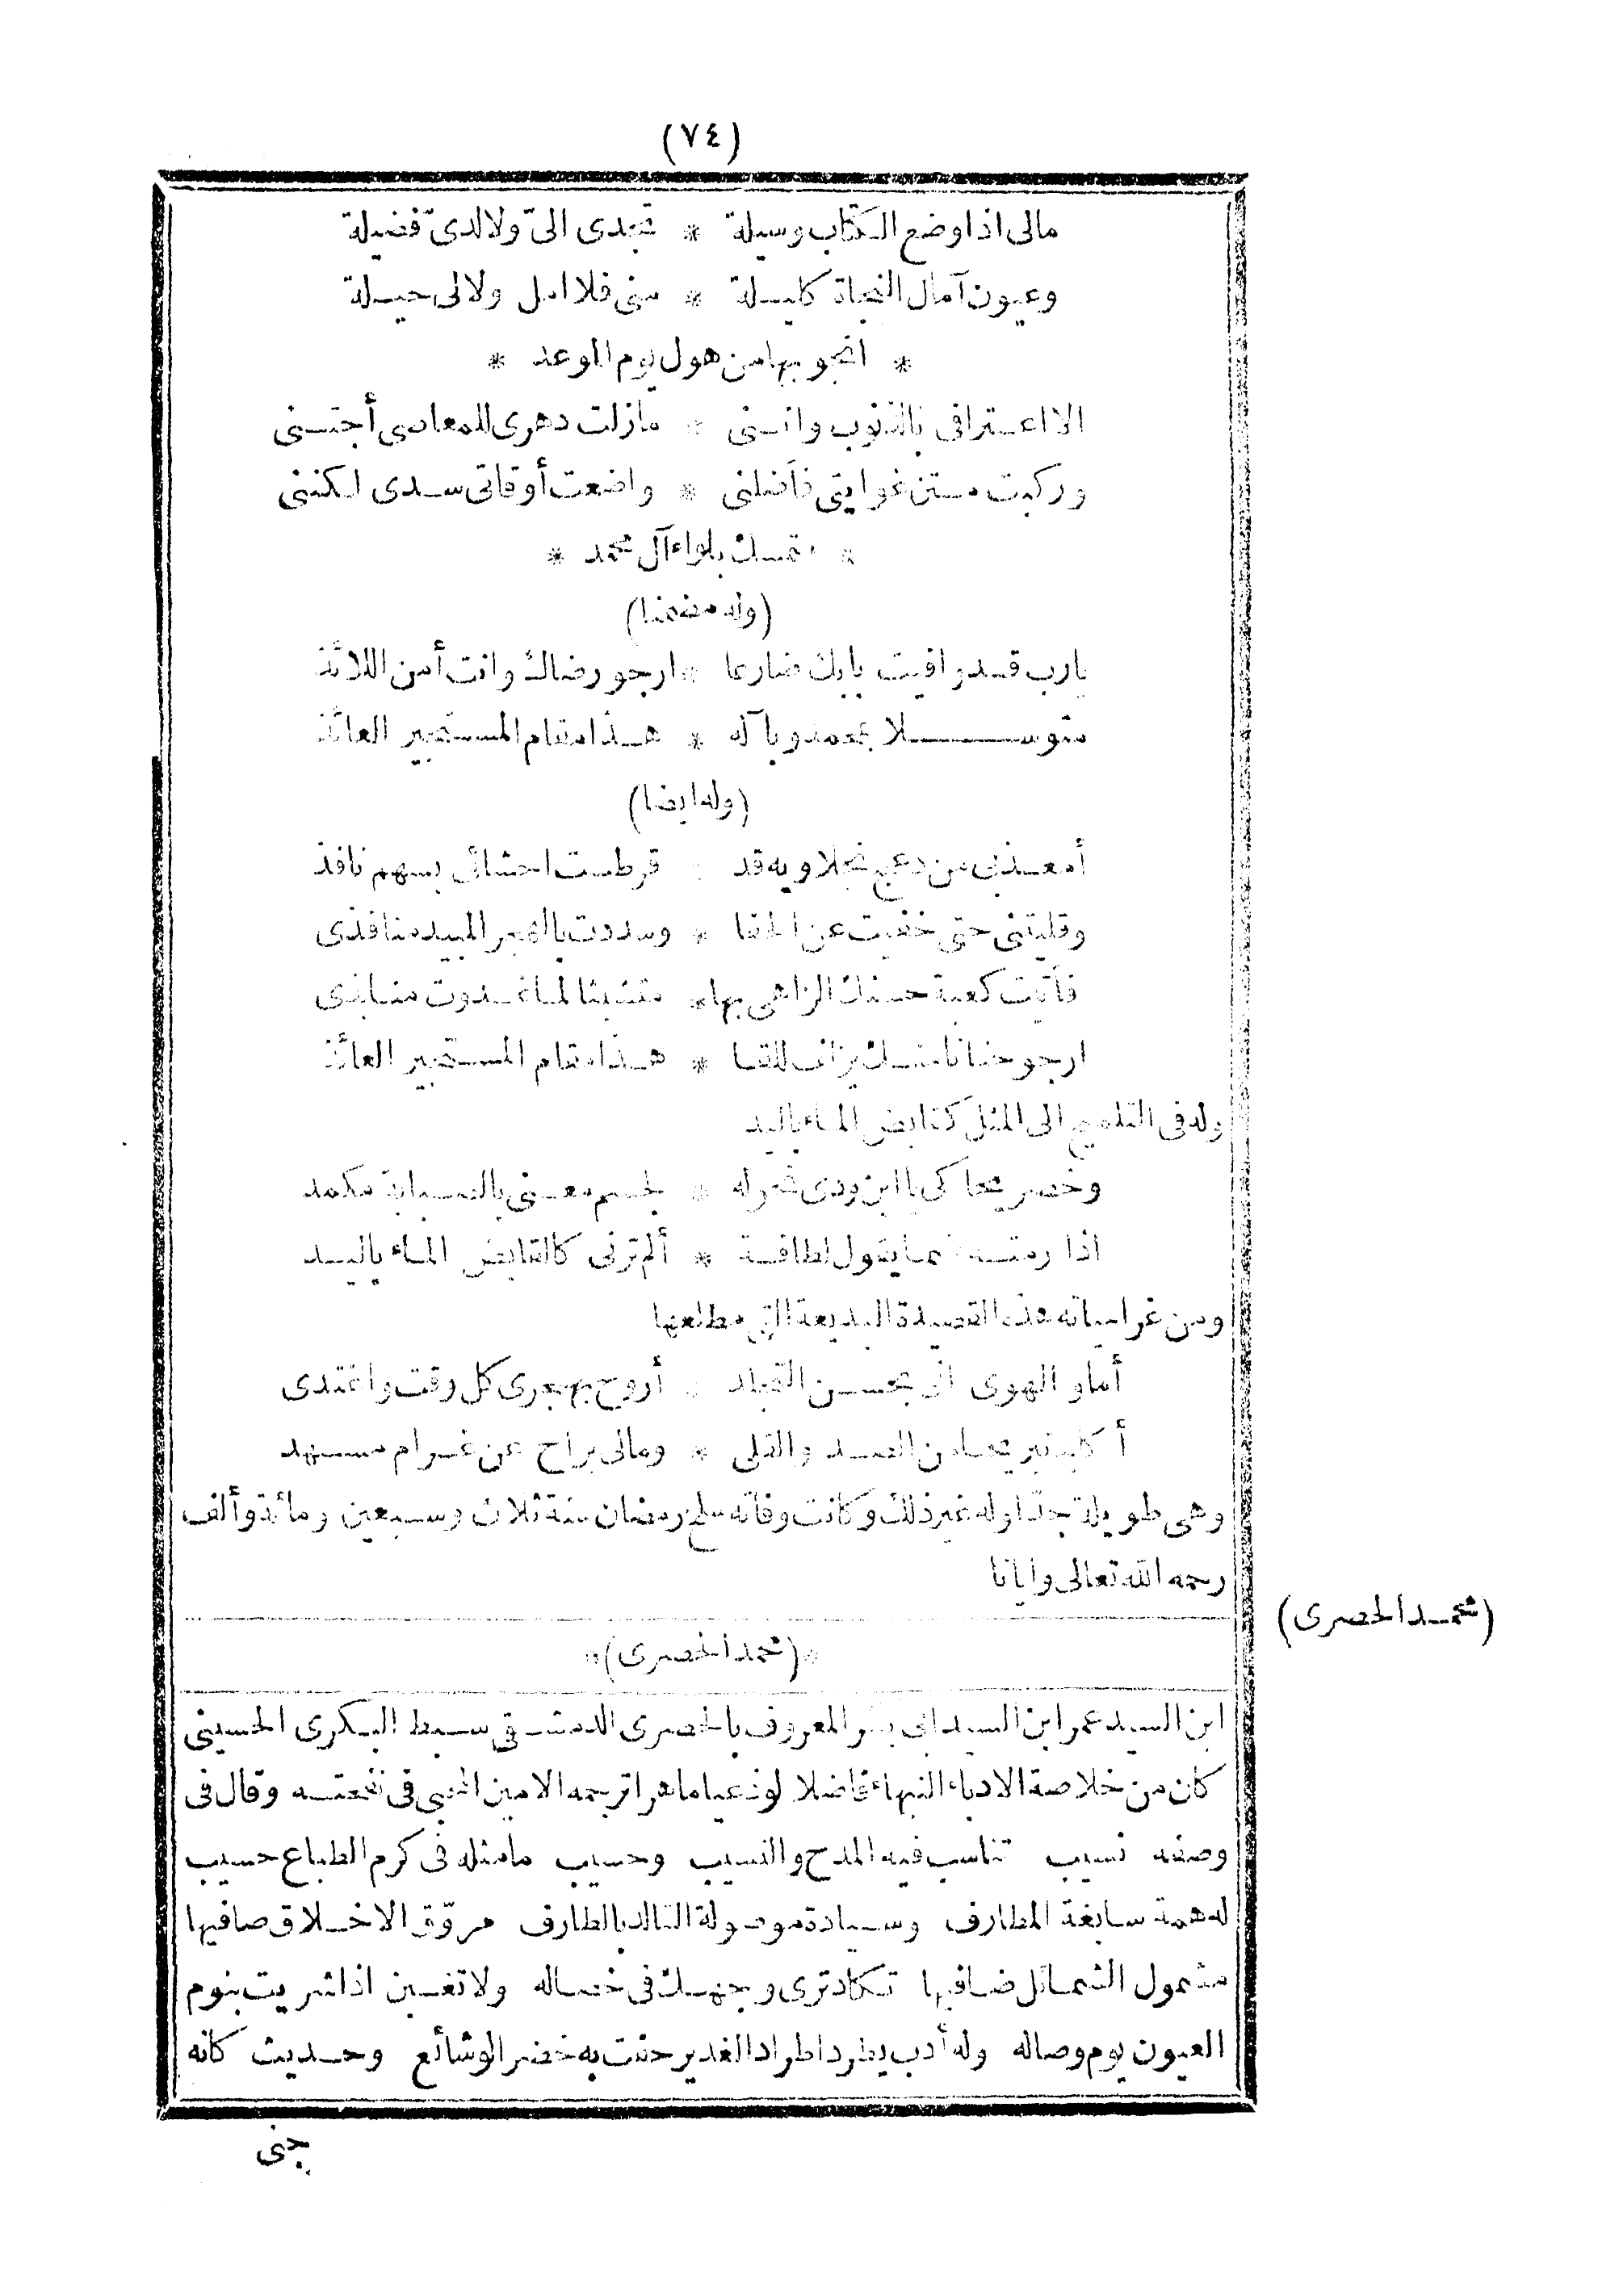 (٧٤)
مالى اذا وضع الكتاب وسيلة * تجدى الىّ ولا لدىّ فضيلة
وعيون آمال النجاة كليلة * منى فلا امل ولا لى حيلة
* انجو بها من هول يوم الموعد *
الا اعترافى بالذنوب واننى * مازلت دهرى للمعاصى أجتنى
وركبت متن غوايتى فأضلنى * واضعت أوقاتى سدى لكننى
* متمسك بلواء آل محمد *
(وله مضمنا)
يارب قد وافيت بابك ضارعا * ارجو رضاك وانت أمن اللائذ
متوسلا بمحمد وبآله * هذا مقام المستجير العائذ
(وله ايضا)
أمعذبى من دعج نجلاويه قد * قرطست احشائى بسهم نافذ
وقليتنى حتى خفيت عن الخفا * وسددت بالهجر المبيد منافذى
فأتيت كعبة حسنك الزاهى بها * متشبثا لما غدوت منابذى
ارجو حنانا منك يزلف للقا * هذا مقام المستجير العائذ
وله فى التلميح الى المثل كقابض الماء باليد
وخصر يحاكى يا ابن ودى نحوله * لجسم معنى بالصبابة مكمد
اذا رمته ضما يقول لطافة * ألم ترنى كالقابض الماء باليد
ومن غرامياته هذه القصيدة البديعة التى مطلعها
أما والهوى انى بحسن التجلد * أروح بهجرى كل وقت واغتدى
أكابد تبريحا من الصد والقلى * ومالى براح عن غرام مسهد
وهى طويلة جدّا وله غير ذلك وكانت وفاته سلخ رمضان سنة ثلاث وسبعين ومائة وألف
رحمه الله تعالى وايانا
(محمد الحصرى)
*(محمد الحصرى)*
ابن السيد عمر ابن السيد ابى بكر المعروف بالحصرى الدمشقى سبط البكرى الحسينى
كان من خلاصة الادباء النبهاء فاضلا لوذعيا ماهرا ترجمه الامين المحبى فى نفحته وقال فى
وصفه نسيب تناسب فيه المدح والنسيب وحسيب مامثله فى كرم الطباع حسيب
له همة سابغة المطارف وسيادة موصولة التالد بالطارف مروّق الاخلاق صافيها
مشمول الشمائل ضافيها تكاد ترى وجهك فى خصاله ولا تغبن اذا شريت بنوم
العيون يوم وصاله وله أدب يطرد اطراد الغدير حفت به خضر الوشائع وحديث كانه
جنى